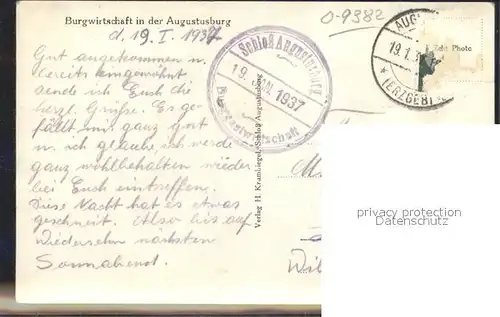 Burgwirtschaft in der Augustusburg
d. 19. I. 1937
O-9382
Gut angekommen u.
bereits eingewöhnt
sende ich Euch die
herzl. Grüße. Es ge-
fällt mir ganz gut
u. ich glaube, ich werde
ganz wohlbehalten wieder
bei Euch eintreffen.
Diese Nacht hat es etwas
geschneit. Also bis auf
Wiedersehn nächsten
Sonnabend.
Schloß Augustusburg
19. JAN. 1937
Burggastwirtschaft
Verlag H. Schloß Augustusburg
AUG
19.1.3
(ERZGEB)
Echt Photo
Wil
privacy protection
Datenschutz